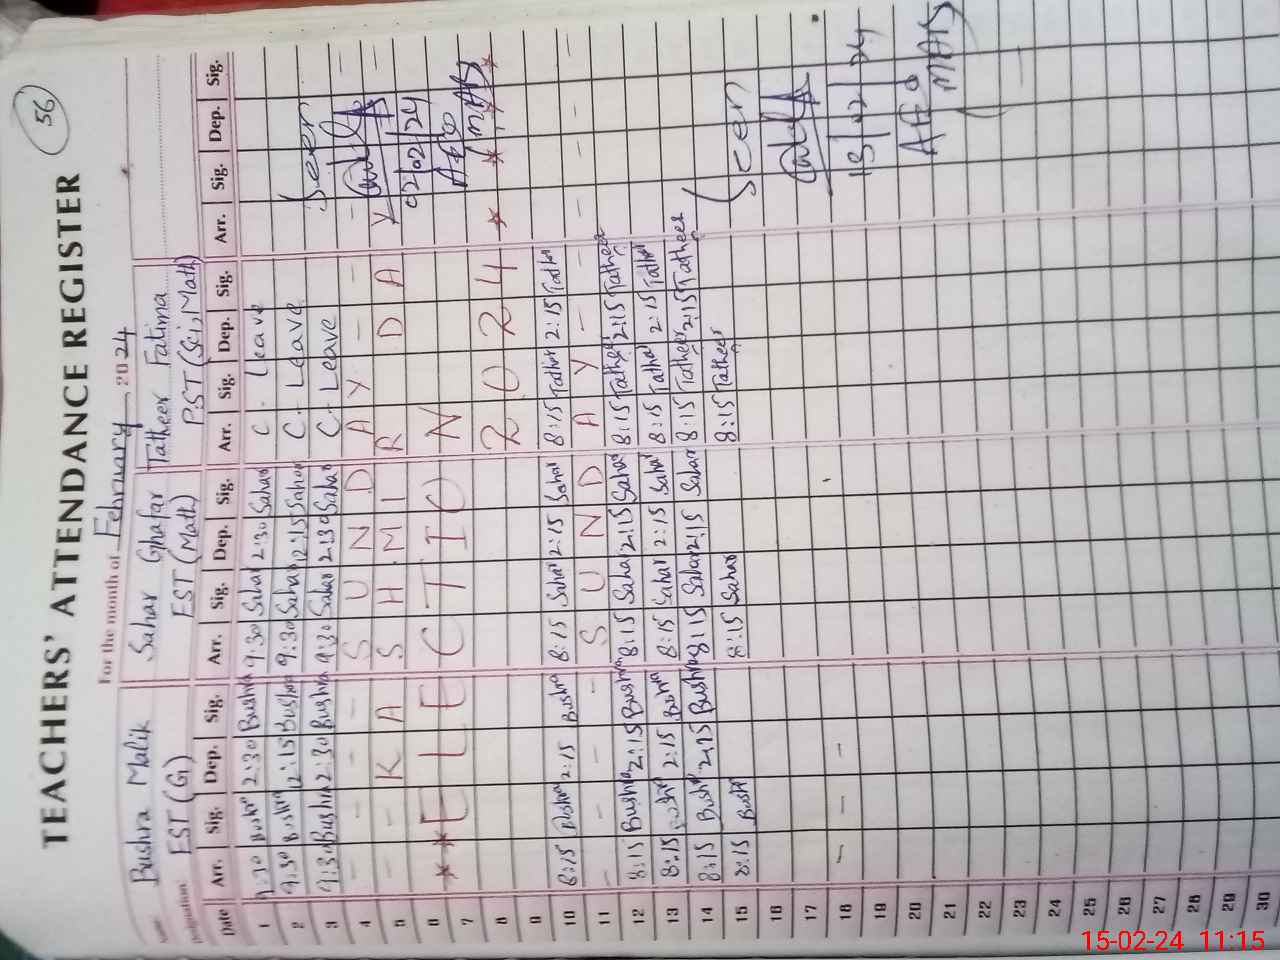 56
TEACHERS' ATTENDANCE REGISTER
For the month of February 2024
Name Bushra Malik Sahar Ghafar Tatheer Fatima
Designation EST (G) EST (Math) PST (Sci, Math)
Date Arr. Sig. Dep. Sig. Arr. Sig. Dep. Sig. Arr. Sig. Dep. Sig. Arr. Sig. Dep. Sig.
1 9:30 Bushra 2:30 Bushra 9:30 Sahar 2:30 Sahar C. Leave
2 9:30 Bushra 12:15 Bushra 9:30 Sahar 12:15 Sahar C. Leave Seen
3 9:30 Bushra 2:30 Bushra 9:30 Sahar 2:30 Sahar C. Leave
4 - - - - S U N D A Y - - -
5 - - K A S H M I R D A Y 02/02/24
6 * * E L E C T I O N AEO
7 MAR
8 2 0 2 4 * * * *
9
10 8:15 Bushra 2:15 Bushra 8:15 Sahar 2:15 Sahar 8:15 Tather 2:15 Tather - - - -
11 - - - - S U N D A Y - -
12 8:15 Bushra 2:15 Bushra 8:15 Sahar 2:15 Sahar 8:15 Tatheer 2:15 Tatheer
13 8:15 Bushra 2:15 Bushra 8:15 Sahar 2:15 Sahar 8:15 Tather 2:15 Tather
14 8:15 Bushra 2:15 Bushra 8:15 Sahar 2:15 Sahar 8:15 Tatheer 2:15 Tatheer
15 8:15 Bush 8:15 Sahar 8:15 Tatheer Seen
16
17
18 - - - 15/02/24
19
20 AEO
21 MAR
22
23
24
25
26
27
28
29
30
15-02-24 11:15